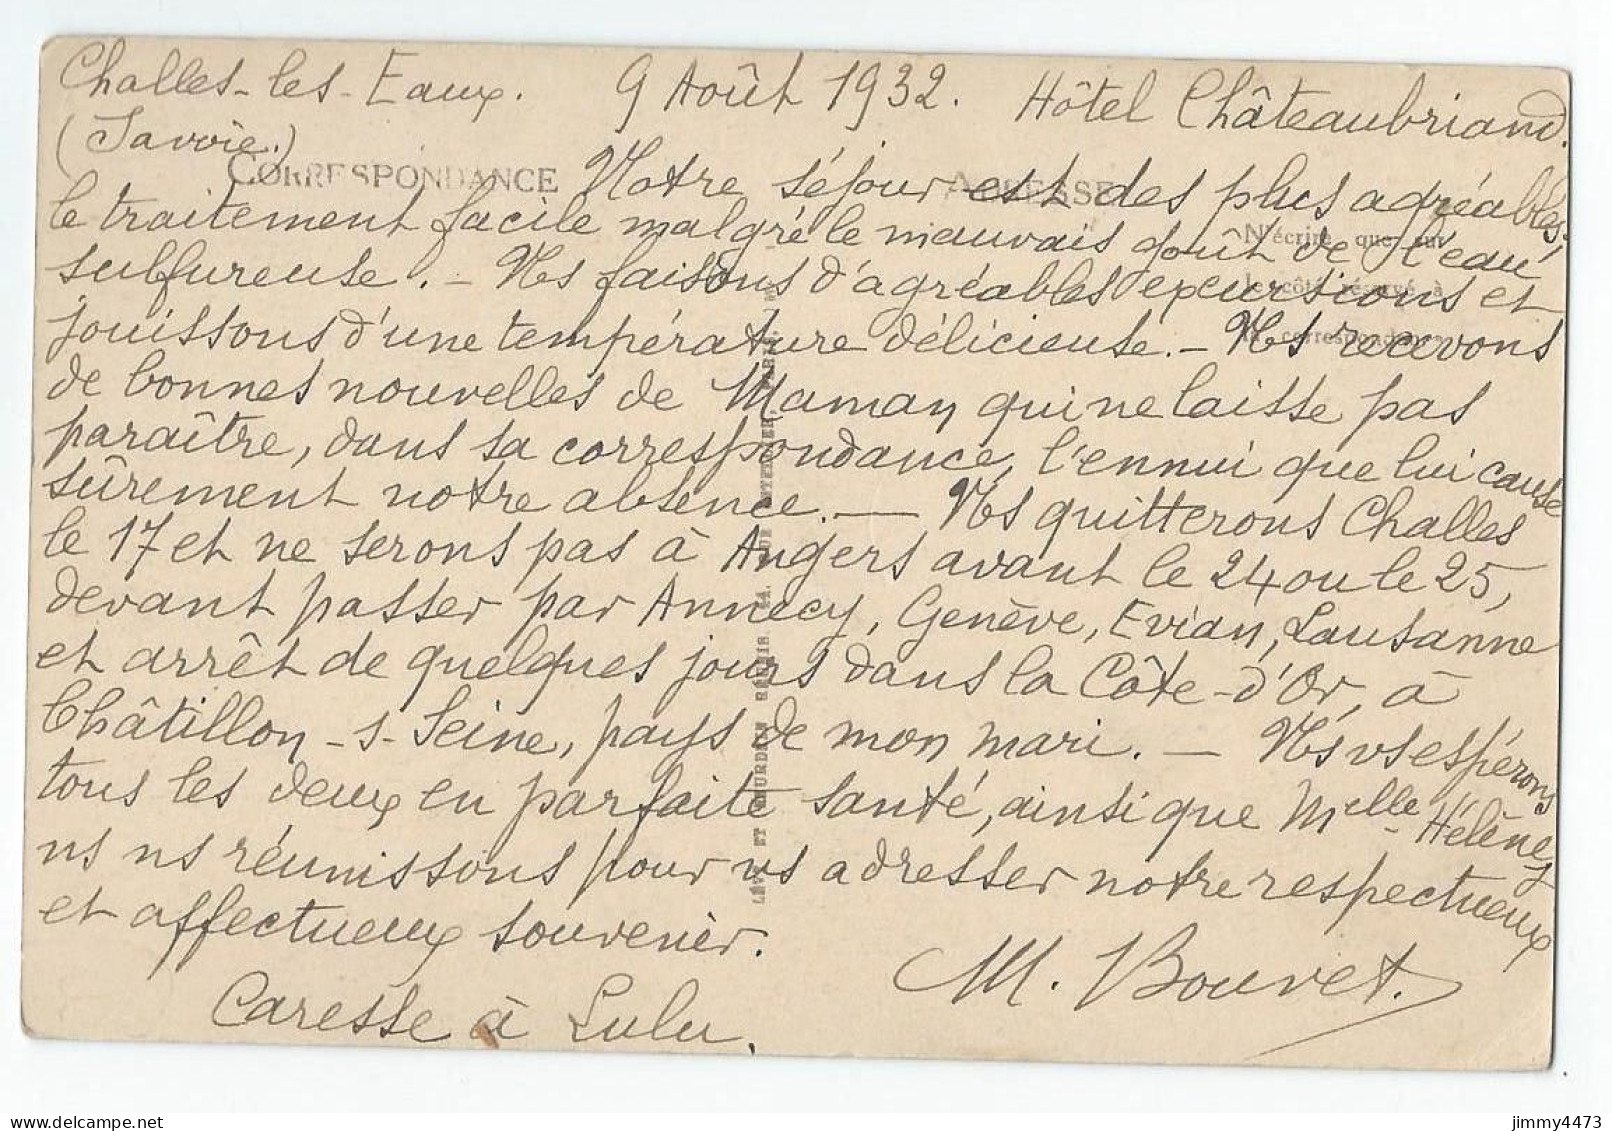 Challes-les-Eaux. 9 Août 1932. Hôtel Châteaubriand.
(Savoie.)
CORRESPONDANCE ADRESSE
Notre séjour est des plus agréables,
le traitement facile malgré le mauvais goût de l'eau
N'écrire que sur
sulfureuse. - Ns faisons d'agréables excursions et
le côté réservé à
jouissons d'une température délicieuse. - Ns recevons
la correspondance
de bonnes nouvelles de Maman qui ne laisse pas
paraître, dans sa correspondance, l'ennui que lui cause
sûrement notre absence. — Ns quitterons Challes
le 17 et ne serons pas à Angers avant le 24 ou le 25,
devant passer par Annecy, Genève, Evian, Lausanne
et arrêt de quelques jours dans la Côte-d'Or, à
Châtillon-s-Seine, pays de mon mari. — Ns vs espérons
tous les deux en parfaite santé, ainsi que Melle Hélène,
ns ns réunissons pour vs adresser notre respectueux
et affectueux souvenir.
M. Bouvet.
Caresse à Lulu.
LÉVY ET NEURDEIN RÉUNIS 44. RUE LETELLIER, PARIS.
jimmy4473